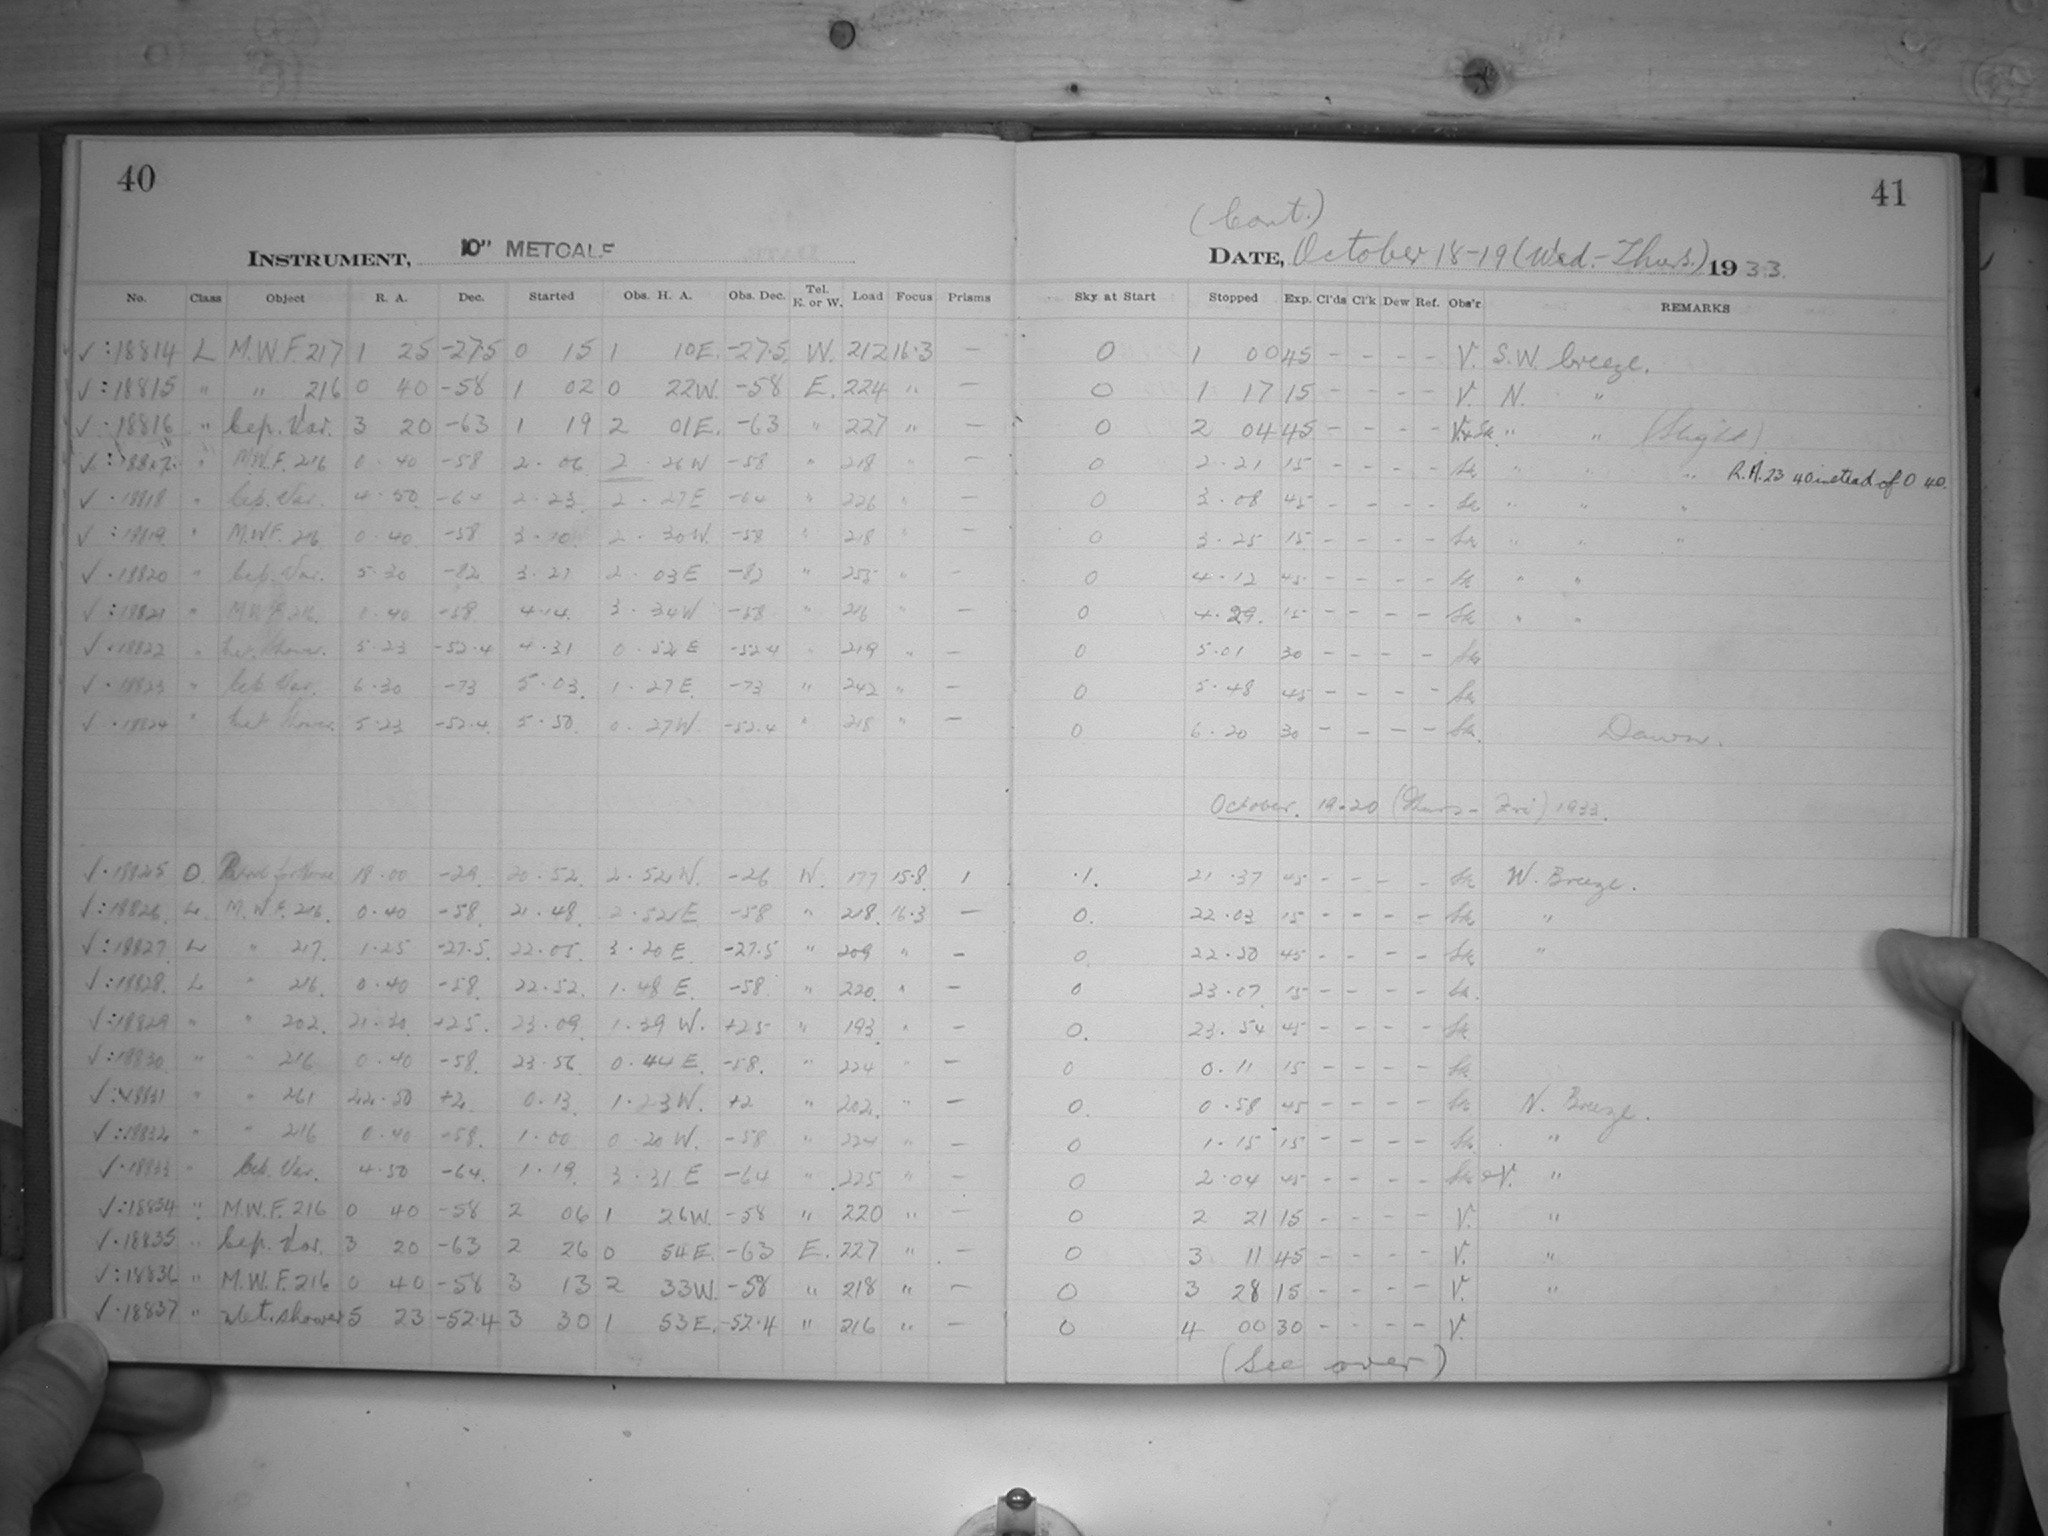 40
41
(Cont.)
INSTRUMENT, 10" METCALF
DATE, October 18-19 (Wed.-Thurs.) 1933.
No. Class Object R. A. Dec. Started Obs. H. A. Obs. Dec. Tel. E. or W. Load Focus Prisms Sky at Start Stopped Exp. Cl'ds Cl'k Dew Ref. Obs'r. REMARKS
√ :18814 L M.W.F. 217 1 25 -27.5 0 15 1 10E. -27.5 W. 212 16.3 — 0 1 00 45 - - - - V. S.W. breeze.
√ :18815 " " 216 0 40 -58 1 02 0 22W. -58 E. 224 " — 0 1 17 15 - - - - V. N. "
√ .18816 " Cep. Var. 3 20 -63 1 19 2 01E. -63 " 227 " — 0 2 04 45 - - - - V.&Sk. " " (Slight)
√ :18817 " M.W.F. 216 0.40 -58 2.06 2.26W -58 " 218 " — 0 2.21 15 - - - - Sk " " " R.A. 23 40 instead of 0 40.
√ .18818 " Cep. Var. 4.50 -64 2.23 2.27E -64 " 226 " — 0 3.08 45 - - - - Sk " " "
√ :18819 " M.W.F. 216 0.40 -58 3.10 2.30W. -58 " 218 " — 0 3.25 15 - - - - Sk " " "
√ .18820 " Cep. Var. 5.30 -82 3.27 2.03E -82 " 255 " — 0 4.12 45 - - - - Sk " "
√ :18821 " M.W.F. 216 0.40 -58 4.14 3.34W -58 " 216 " — 0 4.29. 15 - - - - Sk " "
√ .18822 " Met. Shower. 5.23 -52.4 4.31 0.52E -52.4 " 219 " — 0 5.01 30 - - - - Sk
√ .18823 " Cep. Var. 6.30 -73 5.03. 1.27E. -73 " 242 " — 0 5.48 45 - - - - Sk
√ .18824 " Met Shower 5.23 -52.4. 5.50. 0.27W. -52.4 " 218 " — 0 6.20 30 - - - - Sk. Dawn.
October. 19-20 (Thurs - Fri) 1933.
√ .18825 O. 18.00 -29. 20.52. 2.52W. -26 W. 177 15.8 1 .1. 21.37 45 - - - - Sk W. Breeze.
√ :18826. L. M.W.F. 216. 0.40 -58. 21.48. 2.52E -58 " 218. 16.3 — 0. 22.03 15 - - - - Sk "
√ :18827 L " 217. 1.25 -27.5. 22.05. 3.20E -27.5 " 209 " — 0. 22.50 45 - - - - Sk "
√ :18828. L " 216. 0.40 -58. 22.52. 1.48E. -58 " 220. " — 0 23.07. 15 - - - - Sk.
√ :18829 " " 202. 21.30 +25. 23.09. 1.39W. +25 " 193. " — 0. 23.54 45 - - - - Sk
√ :18830. " " 216 0.40 -58. 23.56. 0.44E. -58. " 224 " — 0 0.11 15 - - - - Sk
√ :18831 " " 261 22.50 +2. 0.13. 1.23W. +2 " 202. " — 0. 0.58 45 - - - - Sk N. Breeze.
√ :18832. " " 216 0.40 -58. 1.00 0.20W. -58 " 224 " — 0 1.15 15 - - - - Sk. "
√ .18833 " Cep. Var. 4.50 -64. 1.19. 3.31E -64 " 225 " — 0 2.04 45 - - - - Sk &V. "
√ :18834 " M.W.F. 216 0 40 -58 2 06 1 26W. -58 " 220 " — 0 2 21 15 - - - - V. "
√ .18835 " Cep. Var. 3 20 -63 2 26 0 54E. -63 E. 227 " — 0 3 11 45 - - - - V. "
√ :18836 " M.W.F. 216 0 40 -58 3 13 2 33W. -58 " 218 " — 0 3 28 15 - - - - V. "
√ .18837 " Met. shower 5 23 -52.4 3 30 1 53E. -52.4 " 216 " — 0 4 00 30 - - - - V.
(See over)